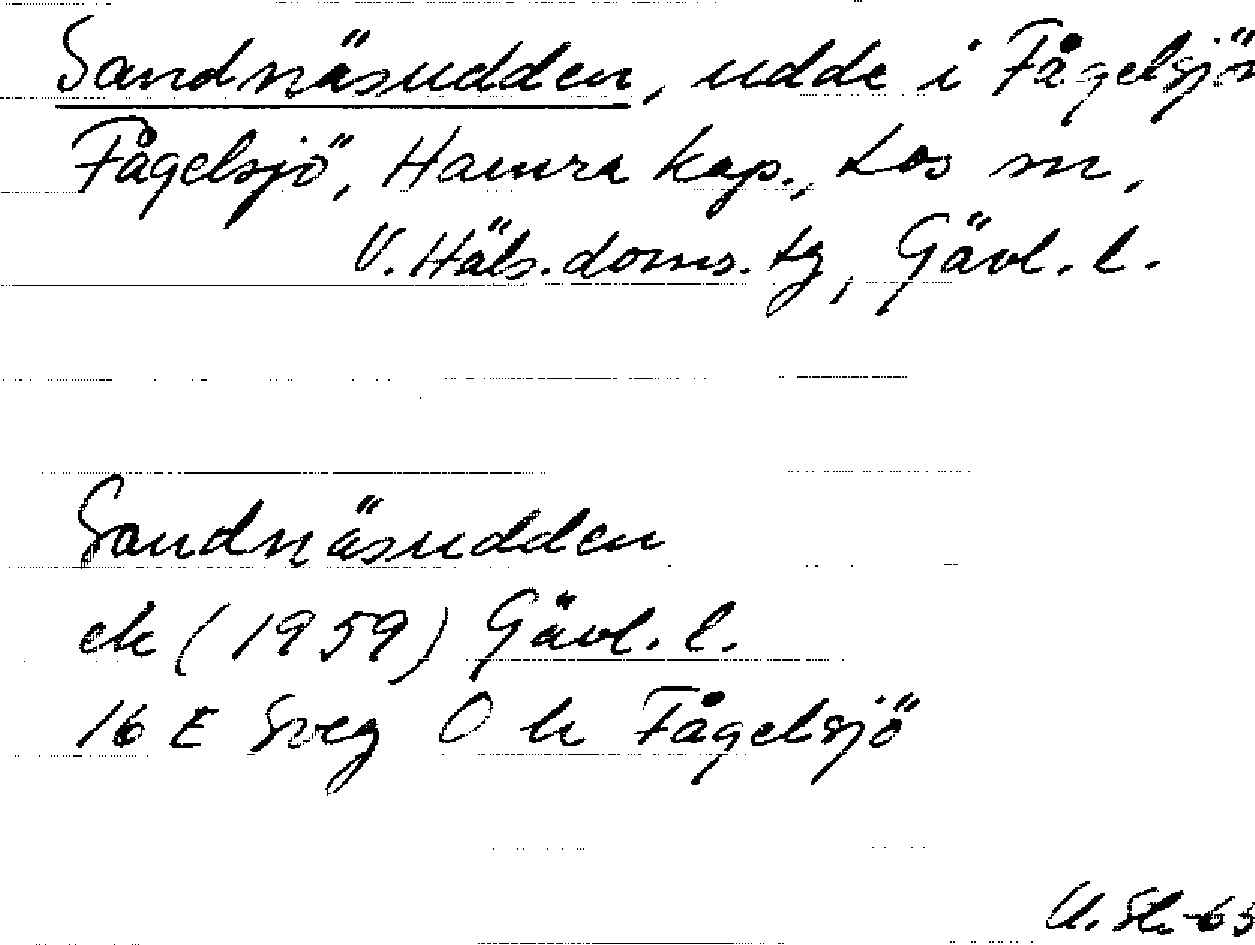 Sandnäsudden, udde i Fågelsjön
Fågelsjö, Hamra kap., Los sn,
V. Häls. doms. tg, Gävl. l.
Sandnäsudden
ek (1959) Gävl. l.
16 E Sveg O h Fågelsjö